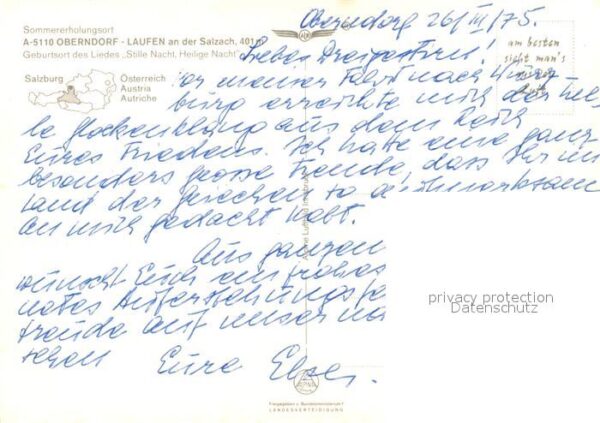 Sommererholungsort
A-5110 OBERNDORF - LAUFEN an der Salzach, 401 m
Geburtsort des Liedes „Stille Nacht, Heilige Nacht"
Salzburg
Österreich
Austria
Autriche
Oberndorf 26/III/75.
Liebes Dreigestirn!
am besten
sieht man's
Vor meiner Fahrt nach Würz-
burg erreichte mich der hel-
le Glockenklang aus dem Reich
Eures Friedens. Ich hatte eine ganz
besonders grosse Freude, dass Ihr im
Land der Griechen so aufmerksam
an mich gedacht habt.
Aus ganzem
wünscht Euch ein frohes
Auferstehungs
freude auf unser
sehen Eure
privacy protection
Datenschutz
Freigegeben v. Bundesministerium f.
LANDESVERTEIDIGUNG